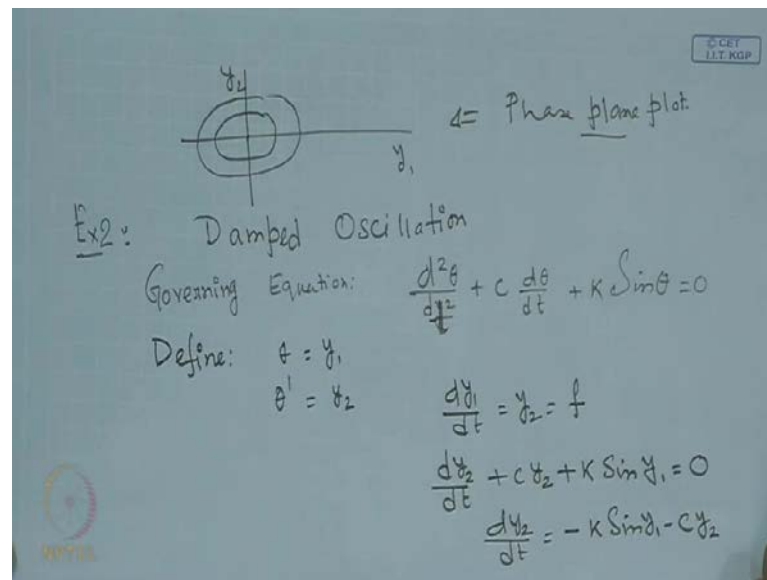 © CET
I.I.T. KGP
y₂
y₁
⇐ Phase plane plot.
Ex2: Damped Oscillation
Governing Equation: d²θ/dt² + c dθ/dt + K Sinθ = 0
Define: θ = y₁
θ' = y₂
dy₁/dt = y₂ = f
dy₂/dt + c y₂ + K Sin y₁ = 0
dy₂/dt = - K Sin y₁ - C y₂
NPTEL